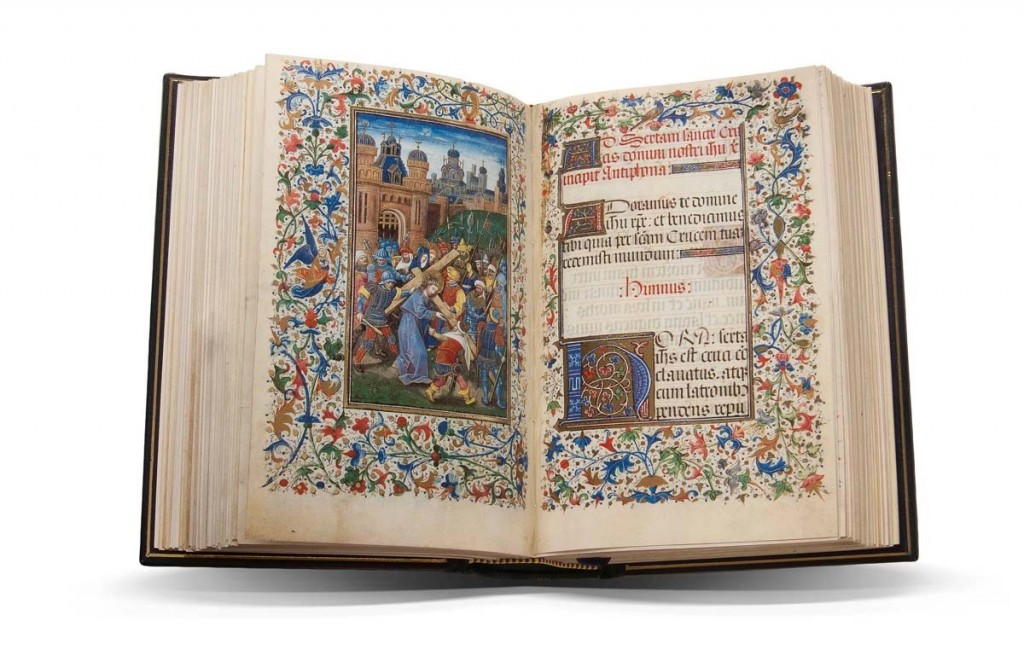 AD Sextam sancte Cru
cis domini nostri ihu x
incipit Antiphona:
Adoramus te domine
ihu xpe: et benedicimus
tibi quia per scam Crucem tuā
redemisti mundum:
Himnus:
HORA: sexta
ihs est cruci cō
clauatus. atqꝫ
cum latronibꝫ
pendens repu